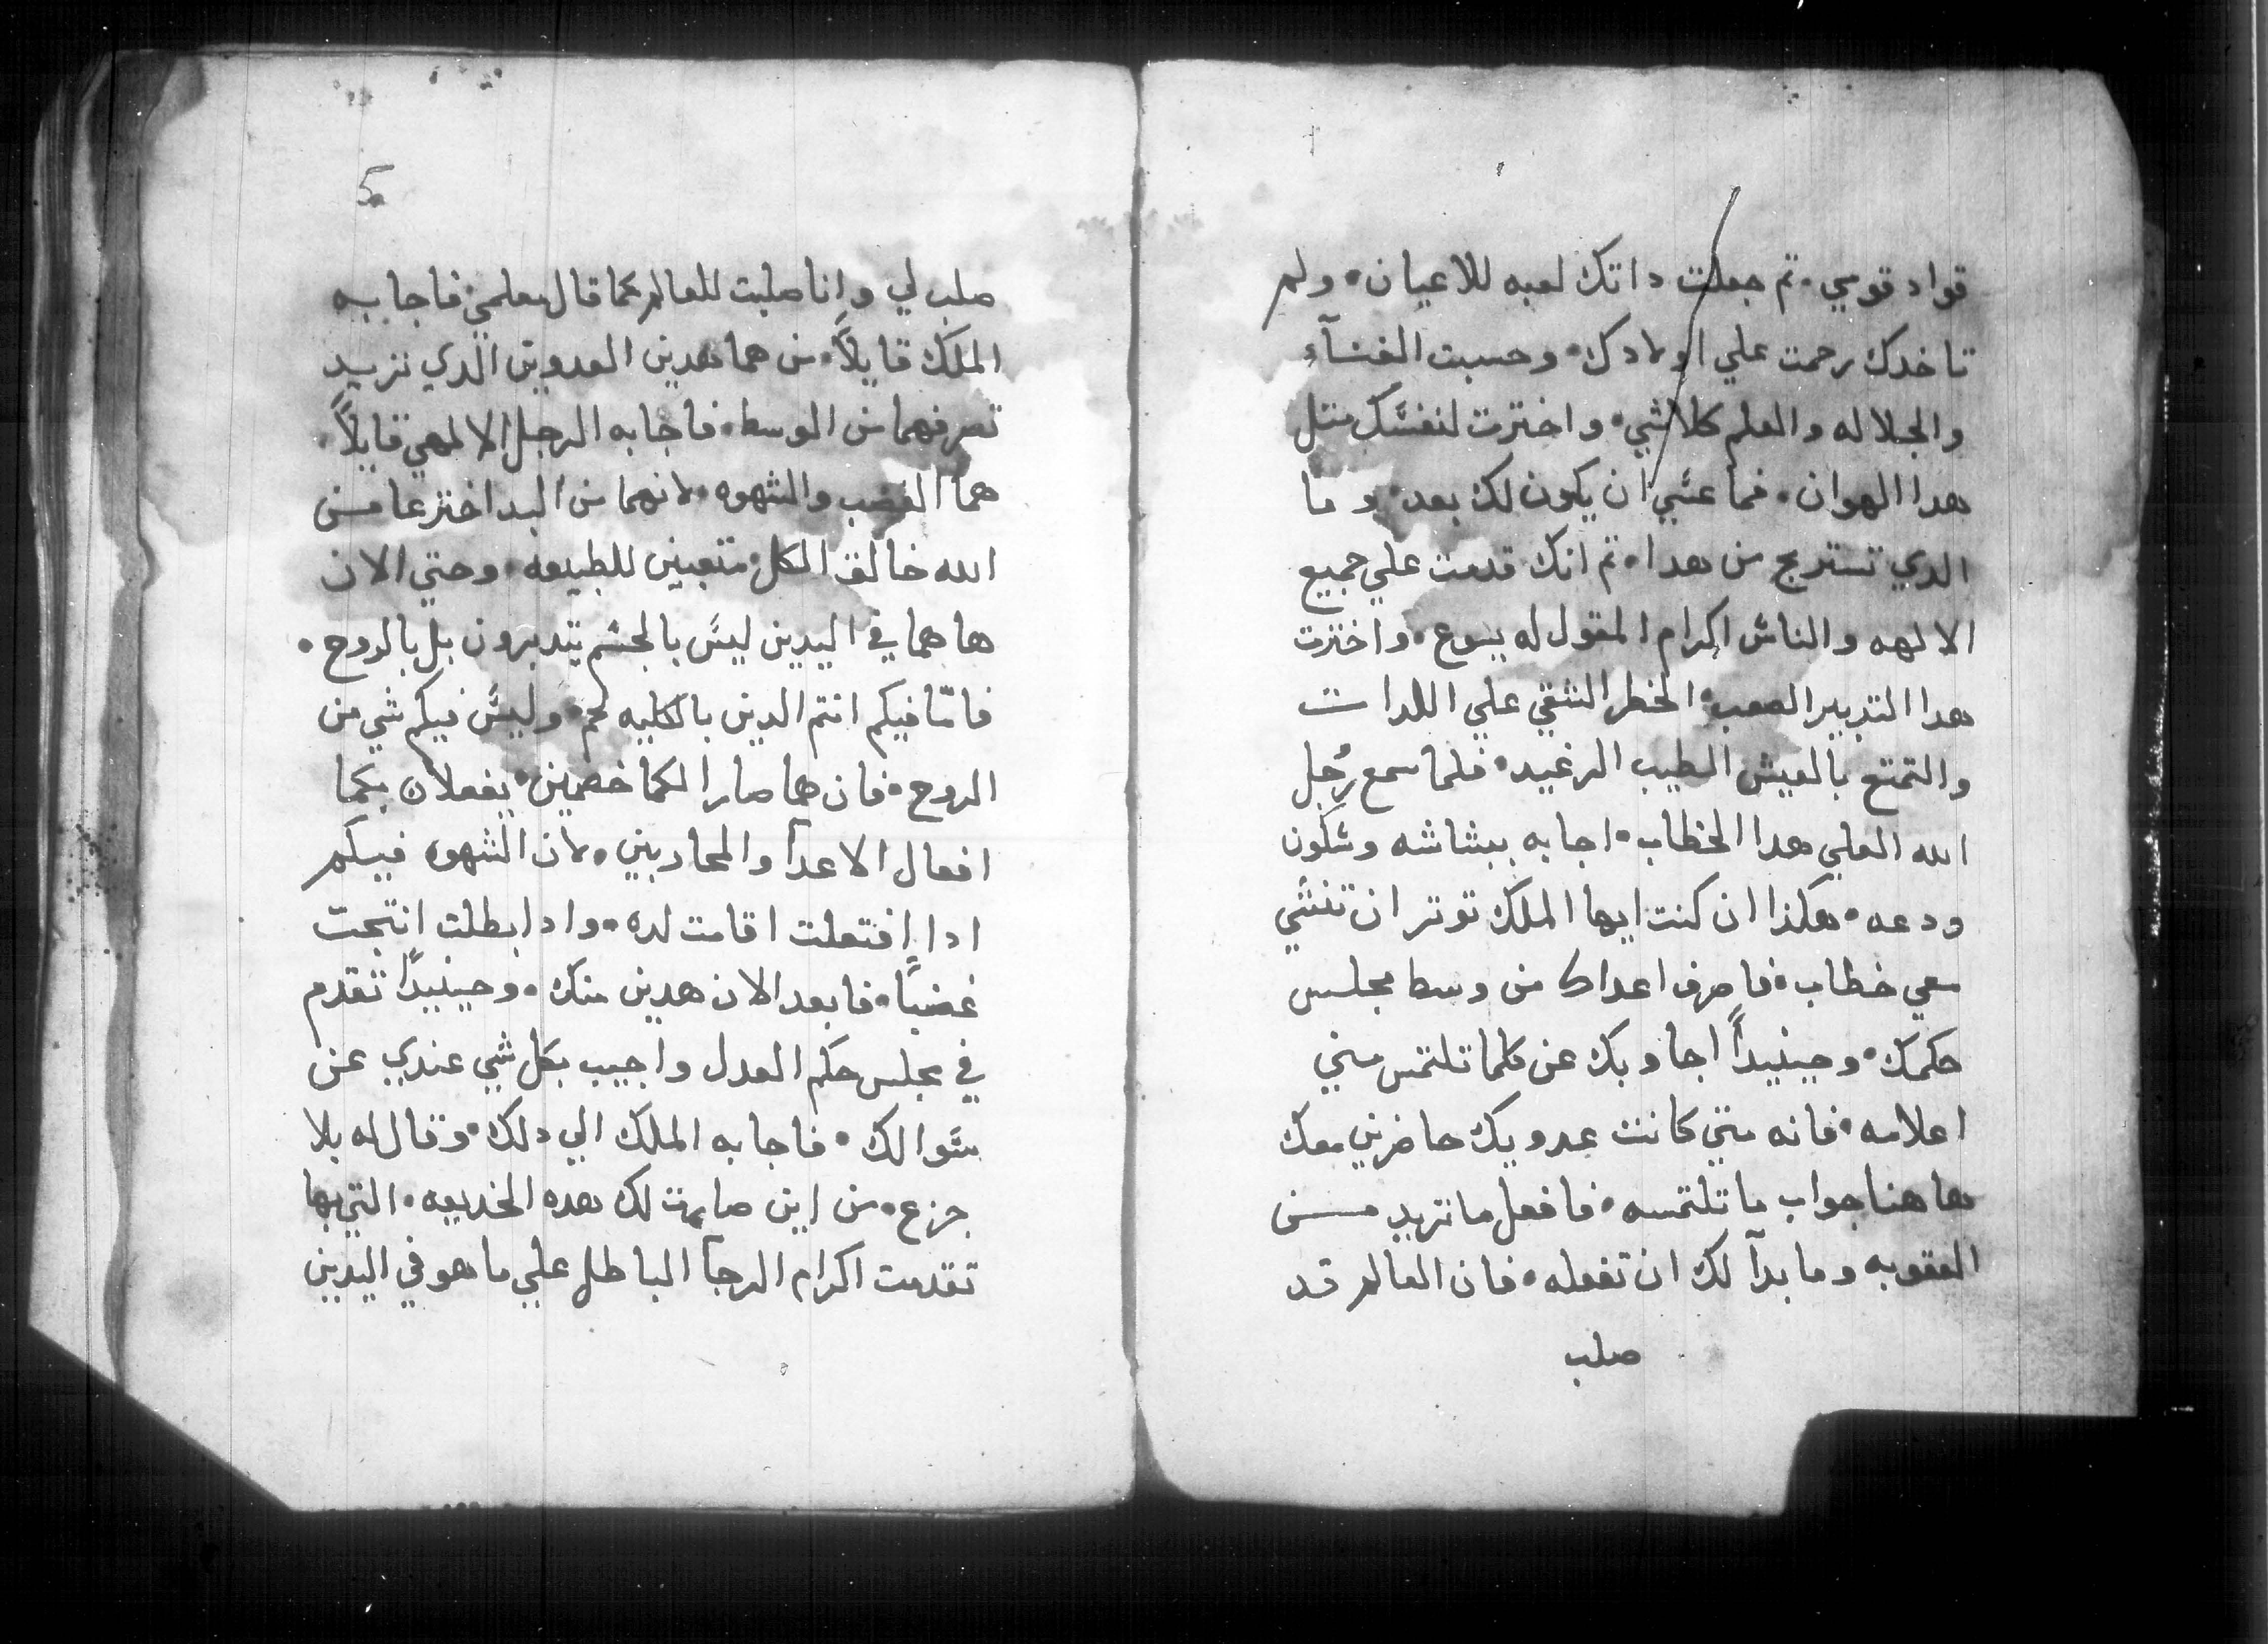 قواد قومي، تم جعلت داتك لعبه للاعيان، ولم
تاخدك رحمت علي اولادك، وحسبت الغنآء
والجلاله والعلم كلاشي، واخترت لنفسك متل
هدا الهوان، فما عسي ان يكون لك بعد، وما
الدي تستربح من هدا، تم انك قدمت علي جميع
الالهه والناس اكرام المقول له يسوع، واخترت
هدا التدبير الصعب، الخطر الشقي علي اللدات
والتمتع بالعيش الطيب الرغيد، فلما سمع رُجل
الله العلي هدا الخطاب، اجابه ببشاشه وسكون
ودعه، هكذا ان كنت ايها الملك توتر ان تنشي
معي خطاب، فاصرف اعداك من وسط مجلس
حكمك، وحينيدًا اجاوبك عن كلما تلتمس مني
اعلامه، فانه متي كانت عدويك حاضرين معك
هاهنا جواب ما تلتمسه، فافعل ما تريد مـن
العقوبه وما بدآ لك ان تفعله، فان العالم قد
صلب
5
صلب لي وانا صلبت للعالم كما قال معلمي، فاجابه
الملك قايلاً، من هما هدين العدوين الدي تريد
تصرفهما من الوسط، فاجابه الرجل الالهي قايلاً،
هما الغضب والشهوه، لانهما من البد اخترعا مـن
الله خالق الكل، متعبين للطبيعه، وحتي الان
هاهما في اليدين ليس بالجسم يتدبرون بل بالروح،
فامّا فيكم انتم الدين بالكليه لحم، وليس فيكم شي من
الروح، فان هما صارا لكما خصمين، يفعلان بكما
افعال الاعدآ والمحاربين، لان الشهوه فيكم
ادا افتعلت اقامت لده، وادا بطلت انتجت
غضبًا، فابعد الان هدين منك، وحينيدًا تقدم
في مجلس حكم العدل واجيب بكل شي عندي عن
سوالك، فاجابه الملك الي دلك، وقال له بلا
جزع، من اين صارت لك هده الخديعه، التي بها
تقدمت اكرام الرجآ الباطل علي ما هو في اليدين